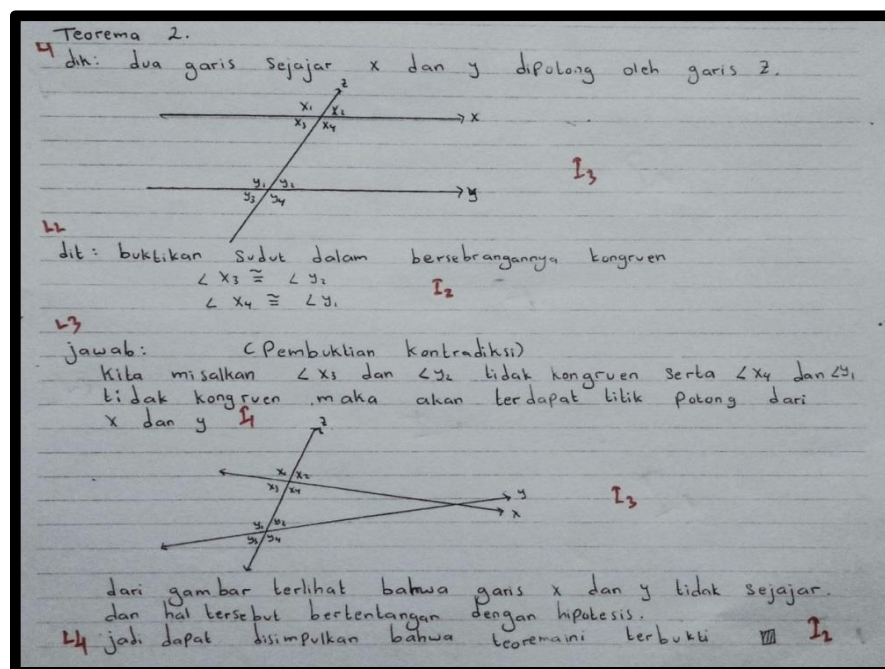 Teorema 2.
L1
dik: dua garis sejajar x dan y dipotong oleh garis z.
z
x₁ x₂
x
x₃ x₄
I₃
y₁ y₂
y
y₃ y₄
L2
dit: buktikan sudut dalam bersebrangannya kongruen
∠ x₃ ≅ ∠ y₂
I₂
∠ x₄ ≅ ∠ y₁
L3
jawab: (Pembuktian kontradiksi)
Kita misalkan ∠ x₃ dan ∠ y₂ tidak kongruen serta ∠ x₄ dan ∠ y₁
tidak kongruen maka akan terdapat titik potong dari
x dan y I₁
z
x₁ x₂
x₃ x₄
y
I₃
x
y₁ y₂
y₃ y₄
dari gambar terlihat bahwa garis x dan y tidak sejajar.
dan hal tersebut bertentangan dengan hipotesis.
L4 jadi dapat disimpulkan bahwa teorema ini terbukti I₂